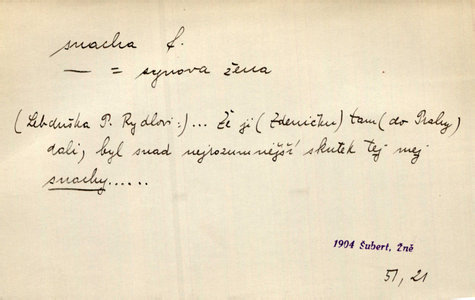 snacha f.
— = synova žena
(Lebduška P. Rydlovi:)... Že ji (Zdeničku) tam (do Prahy)
dali, byl snad nejrozumnější skutek tej mej
snachy......
1904 Šubert, Žně
51, 21